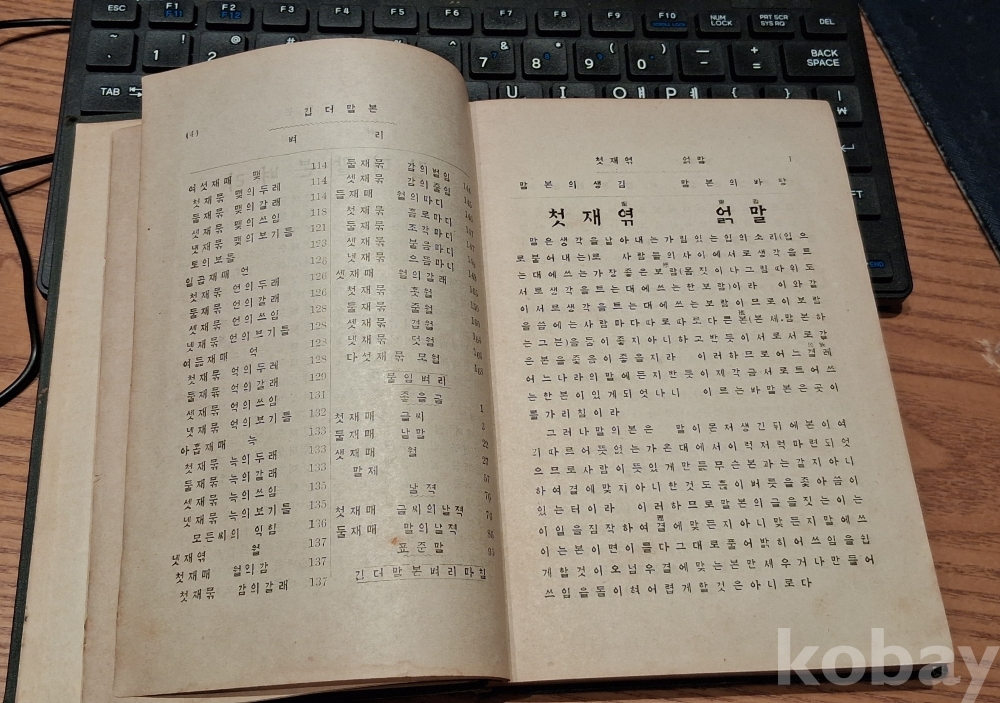 긴더말본
벼리
여섯재매 몇
첫재묶 몇의두레 114
둘재묶 몇의갈래 114
셋재묶 몇의쓰임 118
넷재묶 몇의보기틀 121
토의보틀 123
일곱재매 언
첫재묶 언의두레 126
둘재묶 언의갈래 126
셋재묶 언의쓰임 128
넷재묶 언의보기틀 128
여듧재매 억
첫재묶 억의두레
둘재묶 억의갈래
셋재묶 억의쓰임 131
넷재묶 억의보기틀 132
아홉재매 늑
첫재묶 늑의두레 133
둘재묶 늑의갈래 133
셋재묶 늑의쓰임 135
넷재묶 늑의보기틀 135
모든씨의 익힘 136
넷재엮 월
첫재매 월의감 137
첫재묶 감의갈래 137
둘재묶 감의벌임
셋재묶 감의줄임
둘재매 월의마디
첫재묶 홀로마디
둘재묶 조각마디
셋재묶 붙음마디
넷재묶 으뜸마디
셋재매 월의갈래
첫재묶 홋월
둘재묶 줄월
셋재묶 겹월
넷재묶 덧월
다섯재묶 모월
붙임벼리
좋을글 1
첫재매 글씨 3
둘재매 낱말 22
셋재매 월 27
말제 57
낱적 76
첫재매 글씨의낱적 76
둘재매 말의낱적
표준말 93
긴더말본벼리마침
첫재엮 얽말 1
말본의생김 말본의바탕
첫재엮 얽말
말은생각을낱아내는가림있는입의소리(입으
로불어내는)로 사람들의사이에서로생각을트
는대에쓰는가장좋은보람(몸짓이나그림따위도
서로생각을트는대에쓰는한보람)이라 이와같
이서로생각을트는대에쓰는보람이므로이보람
을씀에는사람마다따로따로다른본(본세,말본하
는그본)을둠이좋지아니하고반듯이서로서로같
은본을좇음이좋을지라 이러하므로어느결레
어느나라의말에든지반듯이제각금서로트어쓰
는한본이있게되엇나니 이르는바말본은곳이
를가리침이라
그러나말의본은 말이몬저생긴뒤에본이여
긔따르어뜻없는가온대에서이럭저럭마련되엇
으므로사람이뜻있게만들무슨본과는같지아니
하여결에맞지아니한것도흖이버릇을좇아씀이
있는터이라 이러하므로말본의글을짓는이는
이일을짐작하여결에맞든지아니맞든지말에쓰
이는본이면이를다그대로풀어밝히어쓰임을쉽
게할것이오넘우결에맞는본만세우거나만들어
쓰임을돌이혀어렵게할것은아니로다